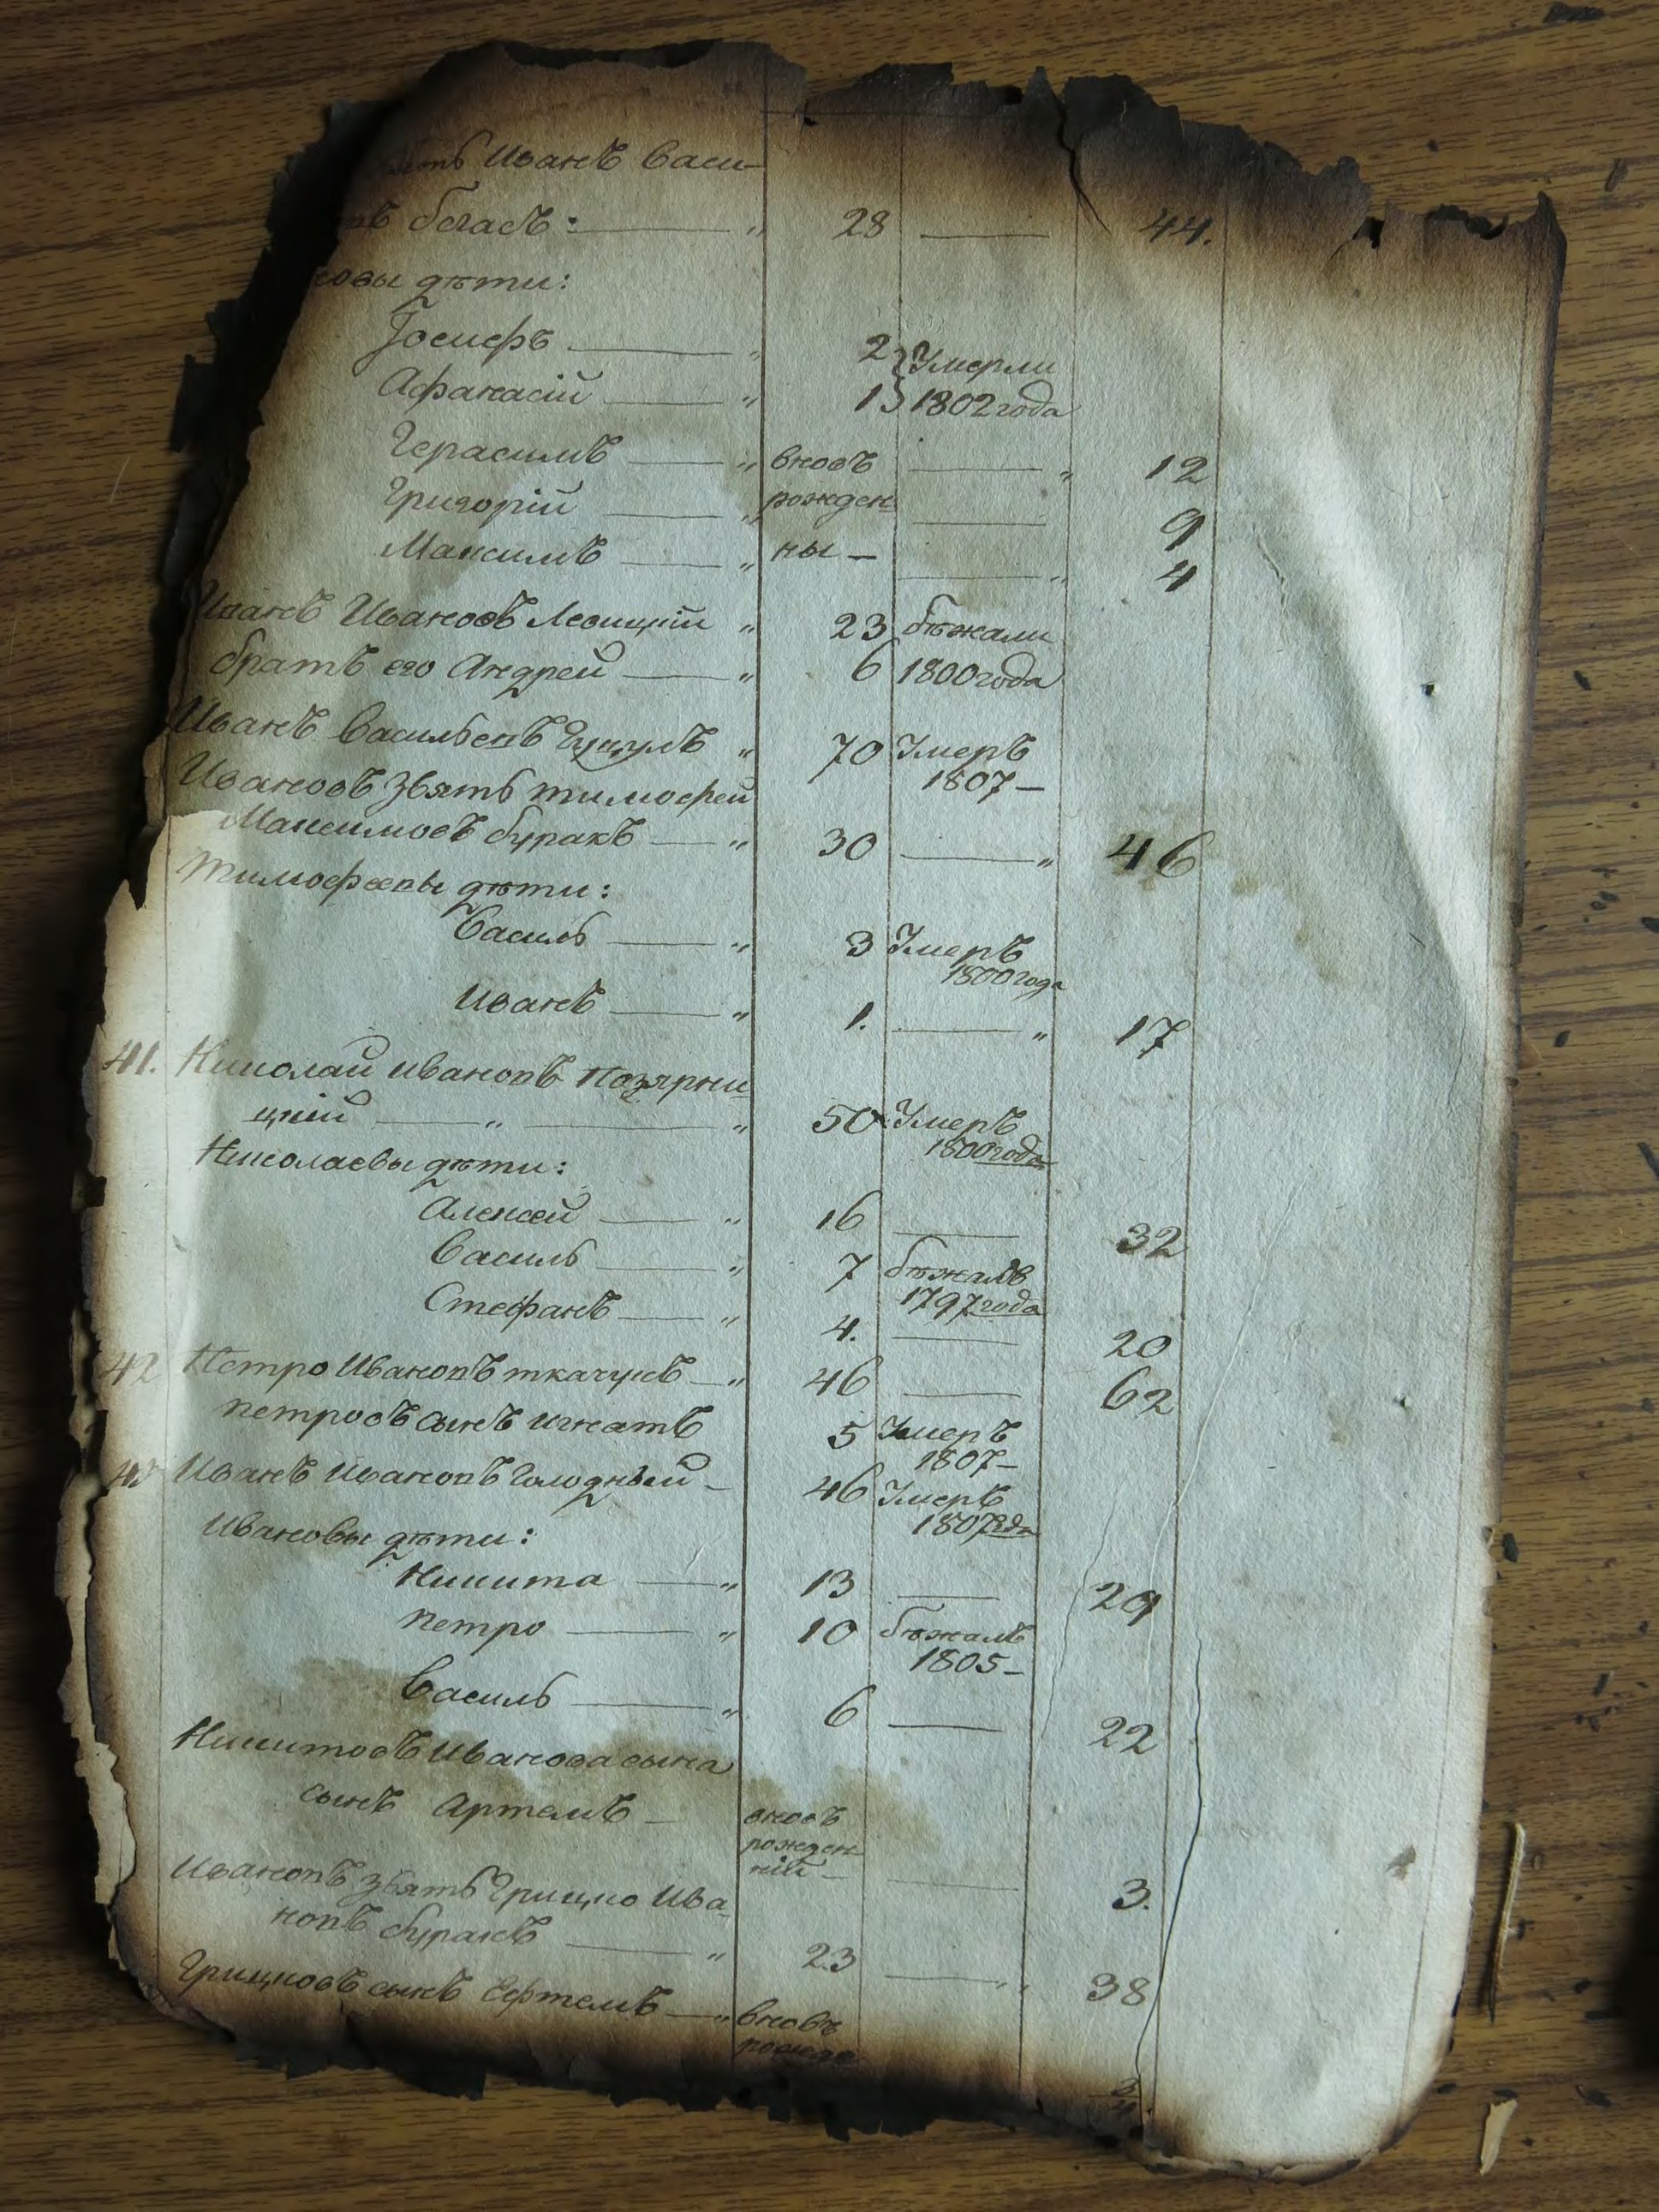 Иванъ Васи-
бегасъ: 28 44.
овы дѣти:
Іосифъ 2 Умерли
Афанасій 1 1802 года
Герасимъ вновъ 12
Григорій рожден 9
Максимъ ны 4
Иванъ Ивановъ Левицкій 23 бѣжали
братъ его Андрей 6 1800 года
Иванъ Васильевъ 70 Умеръ
1807
Ивановъ зять тимофей
Максимовъ буракъ 30 46
тимофеевы дѣти:
Василь 3 Умеръ
1800 года
Иванъ 1. 17
41. Николай ивановъ
цкій 50 Умеръ
1800 года
Николаевы дѣти:
Алексей 16 32
Василь 7 бѣжалъ
1797 года
Стефанъ 4. 20
42 Петро Ивановъ ткачукъ 46 62
петровъ сынъ игнатъ 5 Умеръ
1807
Иванъ Ивановъ голодный 46 Умеръ
1807 года
Ивановы дѣти:
Никита 13 29
петро 10 бѣжалъ
1805
Василь 6 22
Никитовъ Иванова сына
сынъ Артемъ вновъ
рожден
ній 3.
Ивановъ зять Грицко Ива-
новъ буракъ 23 38
Грицковъ сынъ Ефтемъ вновъ
рожде